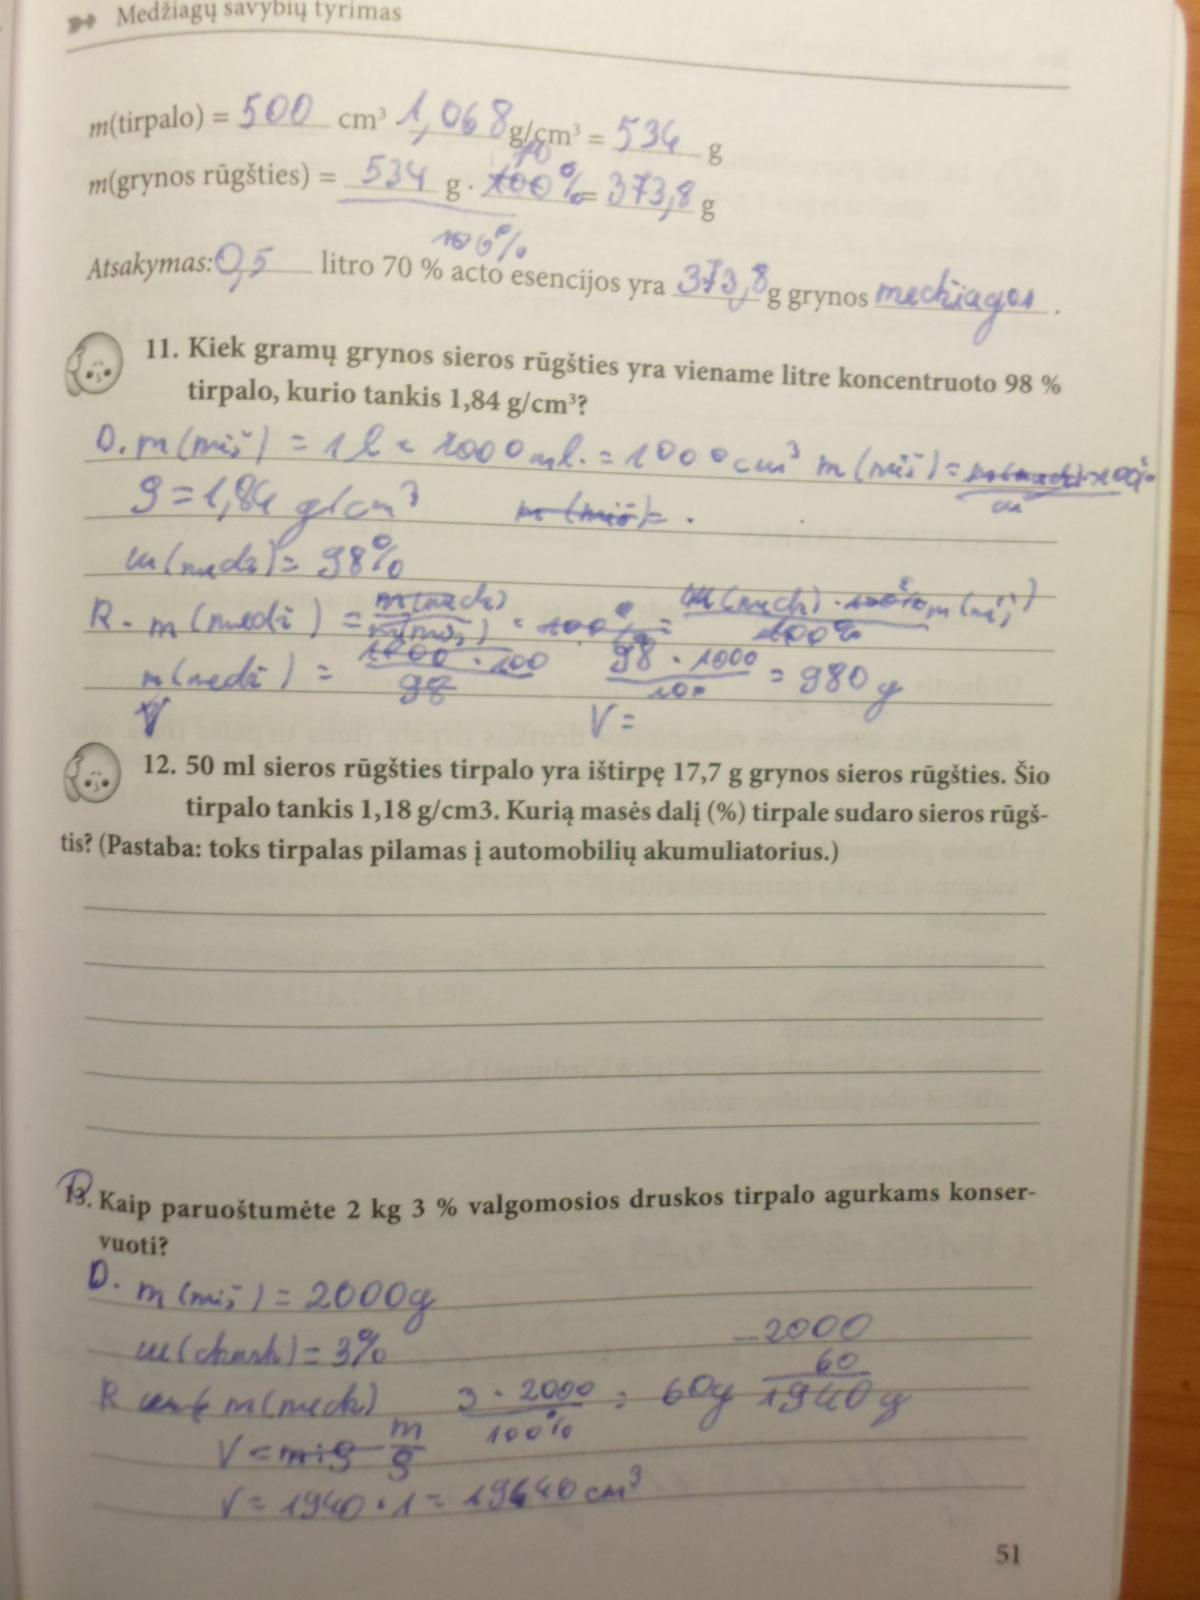 Medžiagų savybių tyrimas
m(tirpalo) = 500 cm³ · 1,068 g/cm³ = 534 g
m(grynos rūgšties) = 534 g · 70 % = 373,8 g
100%
Atsakymas: 0,5 litro 70 % acto esencijos yra 373,8 g grynos medžiagos .
11. Kiek gramų grynos sieros rūgšties yra viename litre koncentruoto 98 %
tirpalo, kurio tankis 1,84 g/cm³?
D. m(miš) = 1 l = 1000 ml. = 1000 cm³ m(miš) =
ρ = 1,84 g/cm³
w(medž) = 98%
R. m(medž) = w(medž) · m(miš)
100%
m(medž) = 98 · 1000 = 980 g
100
V =
12. 50 ml sieros rūgšties tirpalo yra ištirpę 17,7 g grynos sieros rūgšties. Šio
tirpalo tankis 1,18 g/cm3. Kurią masės dalį (%) tirpale sudaro sieros rūgš-
tis? (Pastaba: toks tirpalas pilamas į automobilių akumuliatorius.)
13. Kaip paruoštumėte 2 kg 3 % valgomosios druskos tirpalo agurkams konser-
vuoti?
D. m(miš) = 2000g
w(drusk) = 3%
− 2000
60
R m(medž) 3 · 2000 = 60g 1940g
100%
V = m
ρ
V = 1940 · 1 = 1940 cm³
51